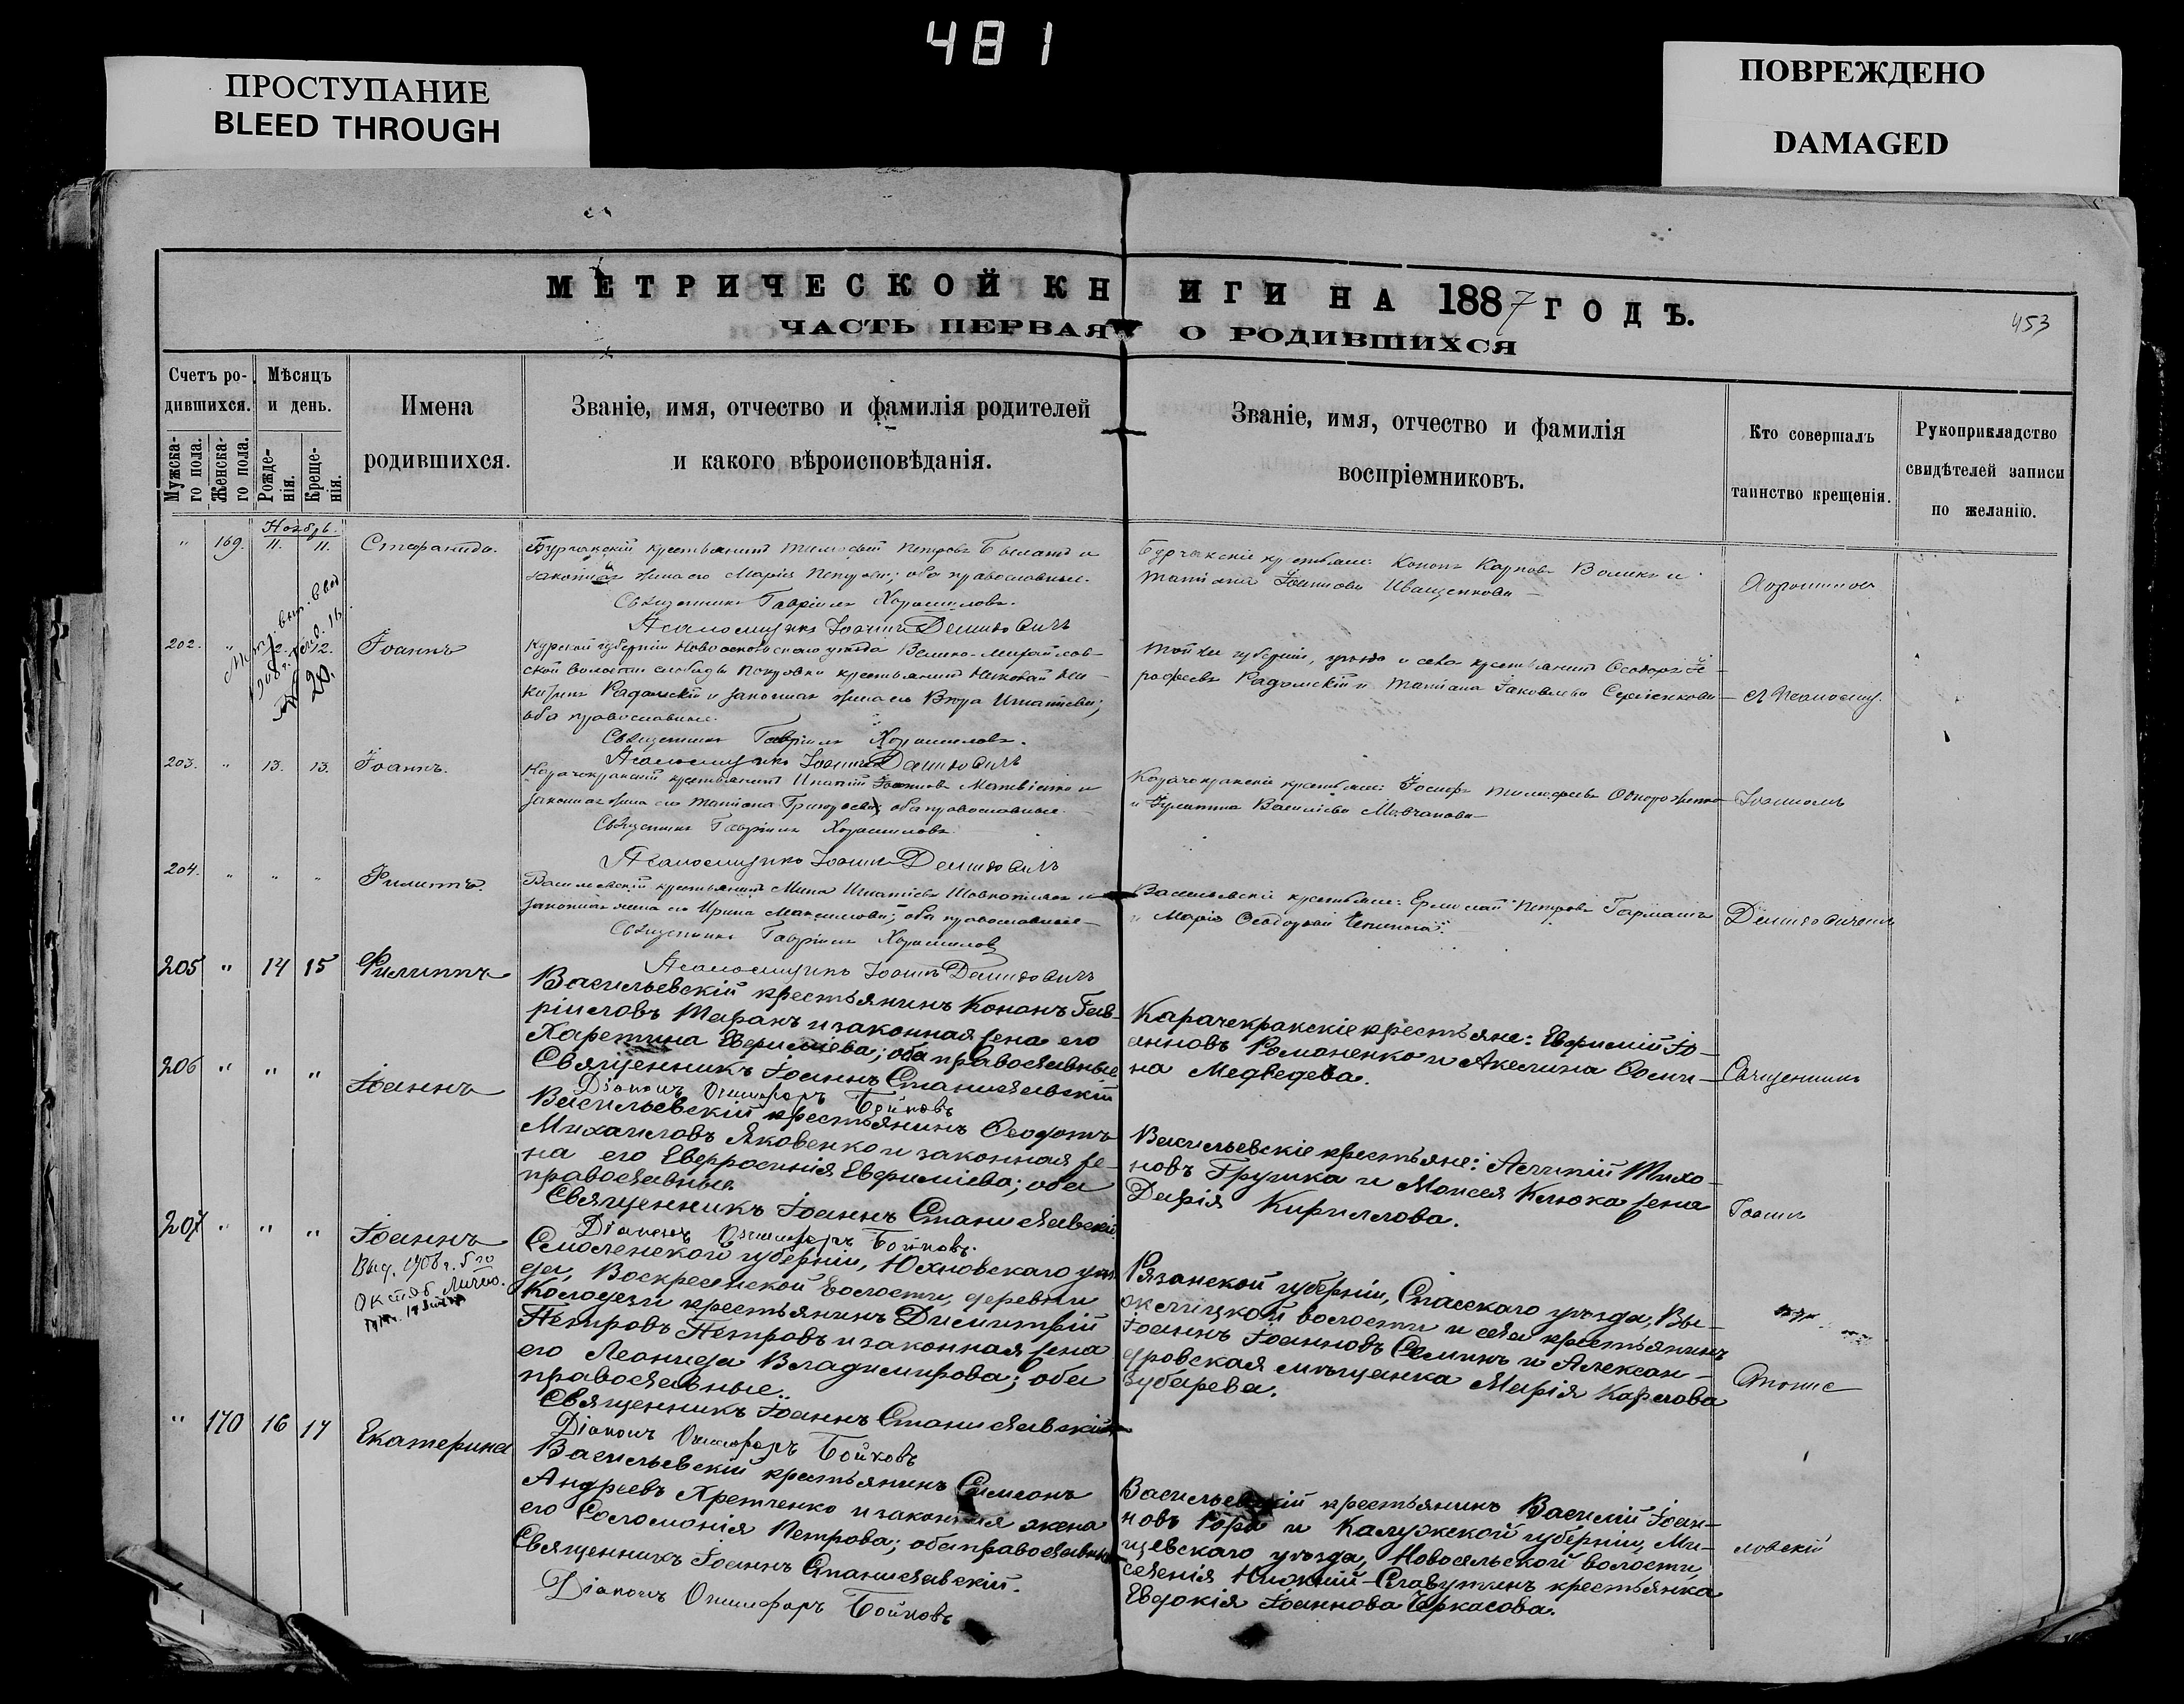 481
ПРОСТУПАНИЕ
BLEED THROUGH
ПОВРЕЖДЕНО
DAMAGED
МЕТРИЧЕСКОЙ КНИГИ НА 1887 ГОДЪ.
ЧАСТЬ ПЕРВАЯ О РОДИВШИХСЯ
453
Счетъ ро-
дившихся.
Мужска-
го пола.
Женска-
го пола.
Мѣсяцъ
и день.
Рожде-
нія.
Креще-
нія.
Имена
родившихся.
Званіе, имя, отчество и фамилія родителей
и какого вѣроисповѣданія.
Званіе, имя, отчество и фамилія
воспріемниковъ.
Кто совершалъ
таинство крещенія.
Рукоприкладство
свидѣтелей записи
по желанію.
Ноябрь.
" 169. 11. 11. Стефанида.
крестьянинъ Тимофей Петровъ и
законная жена его Марія Петрова; оба православные.
Священникъ Гавріилъ Хорошиловъ.
Псаломщикъ Іоаннъ Демидовичъ
крестьяне: Кононъ Карповъ и
Татіана Іоаннова Иващенкова
202. " 12. 12. Іоаннъ
Курской губерніи Новооскольскаго уѣзда Велико-Михайлов-
ской волости слободы Покровки крестьянинъ Николай Ни-
китинъ Радомскій и законная жена его Вѣра Игнатіева;
оба православные.
Священникъ Гавріилъ Хорошиловъ.
Псаломщикъ Іоаннъ Демидовичъ
Той же губерніи, уѣзда и села крестьянинъ Ѳеодоръ
Радомскій и Татіана Іаковлева
203. " 13. 13. Іоаннъ.
Карачекракскій крестьянинъ Ипатій Іоанновъ Матвіенко и
законная жена его Татіана Григорьева; оба православные
Священникъ Гавріилъ Хорошиловъ
Псаломщикъ Іоаннъ Демидовичъ
Карачекракскіе крестьяне: Іосифъ Тимофеевъ
и Васильева Мовчанова
Іоанномъ
204. " " " Филиппъ.
Васильевскій крестьянинъ Мина Игнатіевъ и
законная жена его Ирина Максимова; оба православные
Священникъ Гавріилъ Хорошиловъ
Псаломщикъ Іоаннъ Демидовичъ
Васильевскіе крестьяне: Ермолай Петровъ
и Марія
Демидовичемъ
205 " 14 15 Филиппъ
Васильевскій крестьянинъ Кононъ Гав-
ріиловъ Таранъ и законная жена его
Харетина Евфиміева; оба православные
Священникъ Іоаннъ Станиславскій
Діаконъ Онисифоръ Бойковъ
Карачекракскіе крестьяне: Евфимій Іо-
анновъ Романенко и Акелина Ѳоми-
на Медведева.
Священникъ
206 " " " Іоаннъ
Васильевскій крестьянинъ Ѳеодотъ
Михаиловъ Яковенко и законная же-
на его Евфросинія Евфиміева; оба
православные.
Священникъ Іоаннъ Станиславскій
Діаконъ Онисифоръ Бойковъ.
Васильевскіе крестьяне: Алипій Тихо-
новъ Грушка и Моисея Клюка жена
Дарія Кириллова.
Іоаннъ
207 " " " Іоаннъ
Выд. 1906 г. 5 го
Октяб. Лично.
Смоленской губерніи, Юхновскаго уѣз-
да, Воскресенской волости, деревни
Колодези крестьянинъ Димитрій
Петровъ Петровъ и законная жена
его Леонида Владимирова; оба
православные.
Священникъ Іоаннъ Станиславскій
Діаконъ Онисифоръ Бойковъ
Рязанской губерніи, Спасскаго уѣзда, Вы-
волости и села крестьянинъ
Іоаннъ Іоанновъ Семинъ и Алексан-
дровская мѣщанка Марія Карпова
Зубарева.
" 170 16 17 Екатерина
Васильевскій крестьянинъ Симеонъ
Андреевъ Хретченко и законная жена
его Соломонія Петрова; оба православные
Священникъ Іоаннъ Станиславскій.
Діаконъ Онисифоръ Бойковъ
Васильевскій крестьянинъ Василій Іоан-
новъ Гора и Калужской губерніи, Ми-
щевскаго уѣзда, Новосельской волости,
селенія Нижній-Славутинъ крестьянка
Евдокія Іоаннова Черкасова.
ловскій